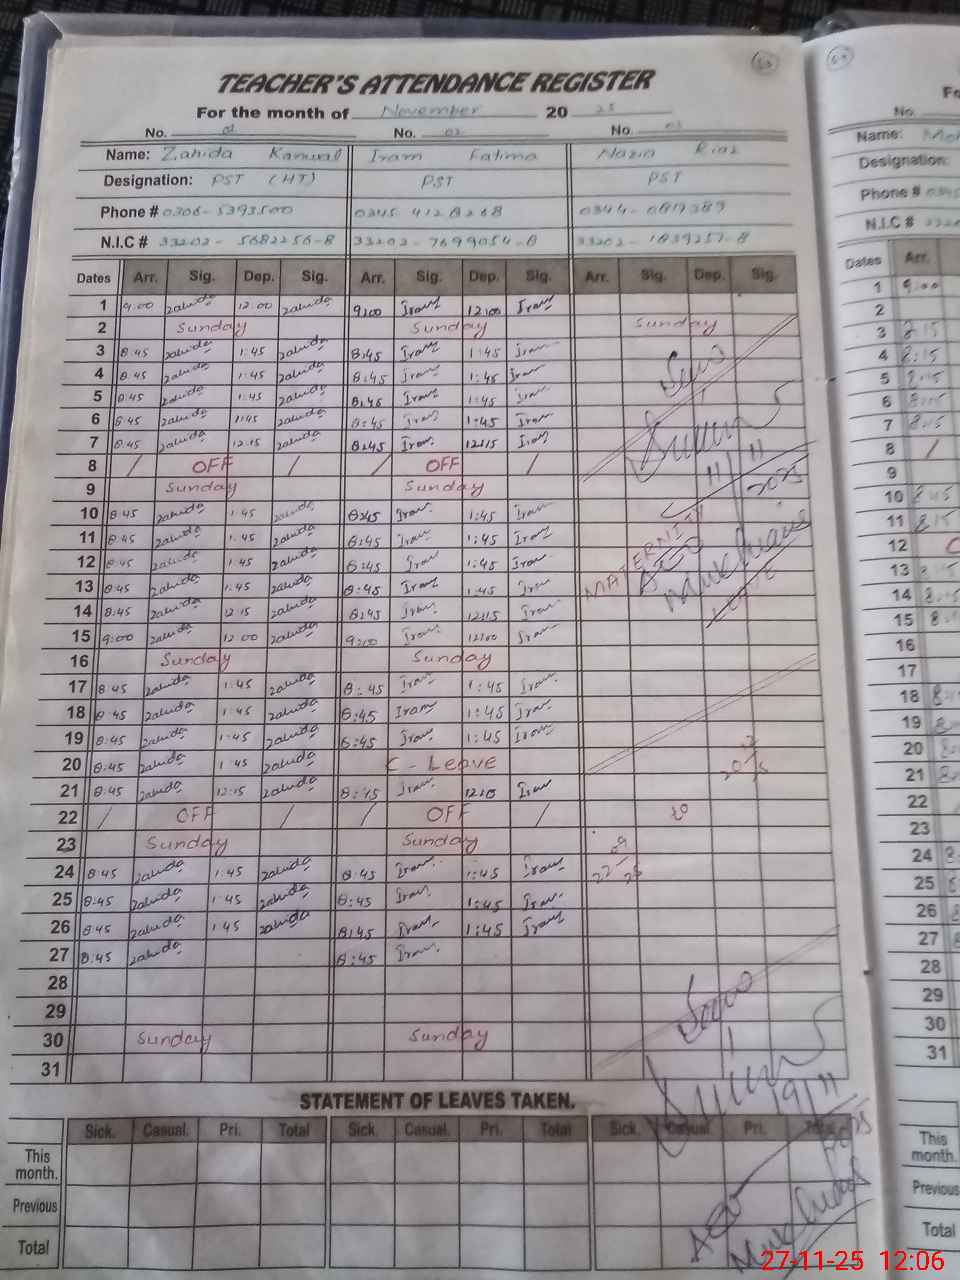 TEACHER'S ATTENDANCE REGISTER
For the month of November 20 25
No. 01 No. 02 No. 03
Name: Zahida Kanwal Iram Fatima Nazia Riaz
Designation: PST (HT) PST PST
Phone # 0306-5393500 0345 4128268 0344-0819389
N.I.C # 33202-5682256-8 33202-7699054-8 33202-1839257-8
Dates Arr. Sig. Dep. Sig. Arr. Sig. Dep. Sig. Arr. Sig. Dep. Sig.
1 9:00 Zahida 12:00 Zahida 9:00 Iram 12:00 Iram
2 Sunday Sunday Sunday
3 8:45 Zahida 1:45 Zahida 8:45 Iram 1:45 Iram
4 8:45 Zahida 1:45 Zahida 8:45 Iram 1:45 Iram
5 8:45 Zahida 1:45 Zahida 8:45 Iram 1:45 Iram
6 8:45 Zahida 1:45 Zahida 8:45 Iram 1:45 Iram
7 8:45 Zahida 12:15 Zahida 8:45 Iram 12:15 Iram
8 / OFF / / OFF /
9 Sunday Sunday
11/11
2025
10 8:45 Zahida 1:45 Zahida 8:45 Iram 1:45 Iram
11 8:45 Zahida 1:45 Zahida 8:45 Iram 1:45 Iram
12 8:45 Zahida 1:45 Zahida 8:45 Iram 1:45 Iram
MATERNITY
LEAVE
13 8:45 Zahida 1:45 Zahida 8:45 Iram 1:45 Iram
14 8:45 Zahida 12:15 Zahida 8:45 Iram 12:15 Iram
15 9:00 Zahida 12:00 Zahida 9:00 Iram 12:00 Iram
16 Sunday Sunday
17 8:45 Zahida 1:45 Zahida 8:45 Iram 1:45 Iram
18 8:45 Zahida 1:45 Zahida 8:45 Iram 1:45 Iram
19 8:45 Zahida 1:45 Zahida 8:45 Iram 1:45 Iram
20 8:45 Zahida 1:45 Zahida C-Leave
21 8:45 Zahida 12:15 Zahida 8:45 Iram Iram
22 / OFF / / OFF /
23 Sunday Sunday
24 8:45 Zahida 1:45 Zahida 8:45 Iram 1:45 Iram
25 8:45 Zahida 1:45 Zahida 8:45 Iram 1:45 Iram
26 8:45 Zahida 1:45 Zahida 8:45 Iram 1:45 Iram
27 8:45 Zahida 8:45 Iram
28
29
30 Sunday Sunday
31
19/11
2025
STATEMENT OF LEAVES TAKEN.
Sick. Casual. Pri. Total Sick. Casual. Pri. Total Sick. Casual. Pri. Total
This month.
Previous
Total
AEO
27-11-25 12:06
No.
Name:
Designation:
Phone #
N.I.C #
Dates Arr.
1 9:00
2
3 8:15
4 8:15
5 8:15
6 8:15
7 8:15
8 /
9
10 8:45
11 8:15
12
13 8:15
14
15
16
17
18
19
20
21
22
23
24
25
26
27
28
29
30
31
This month.
Previous
Total